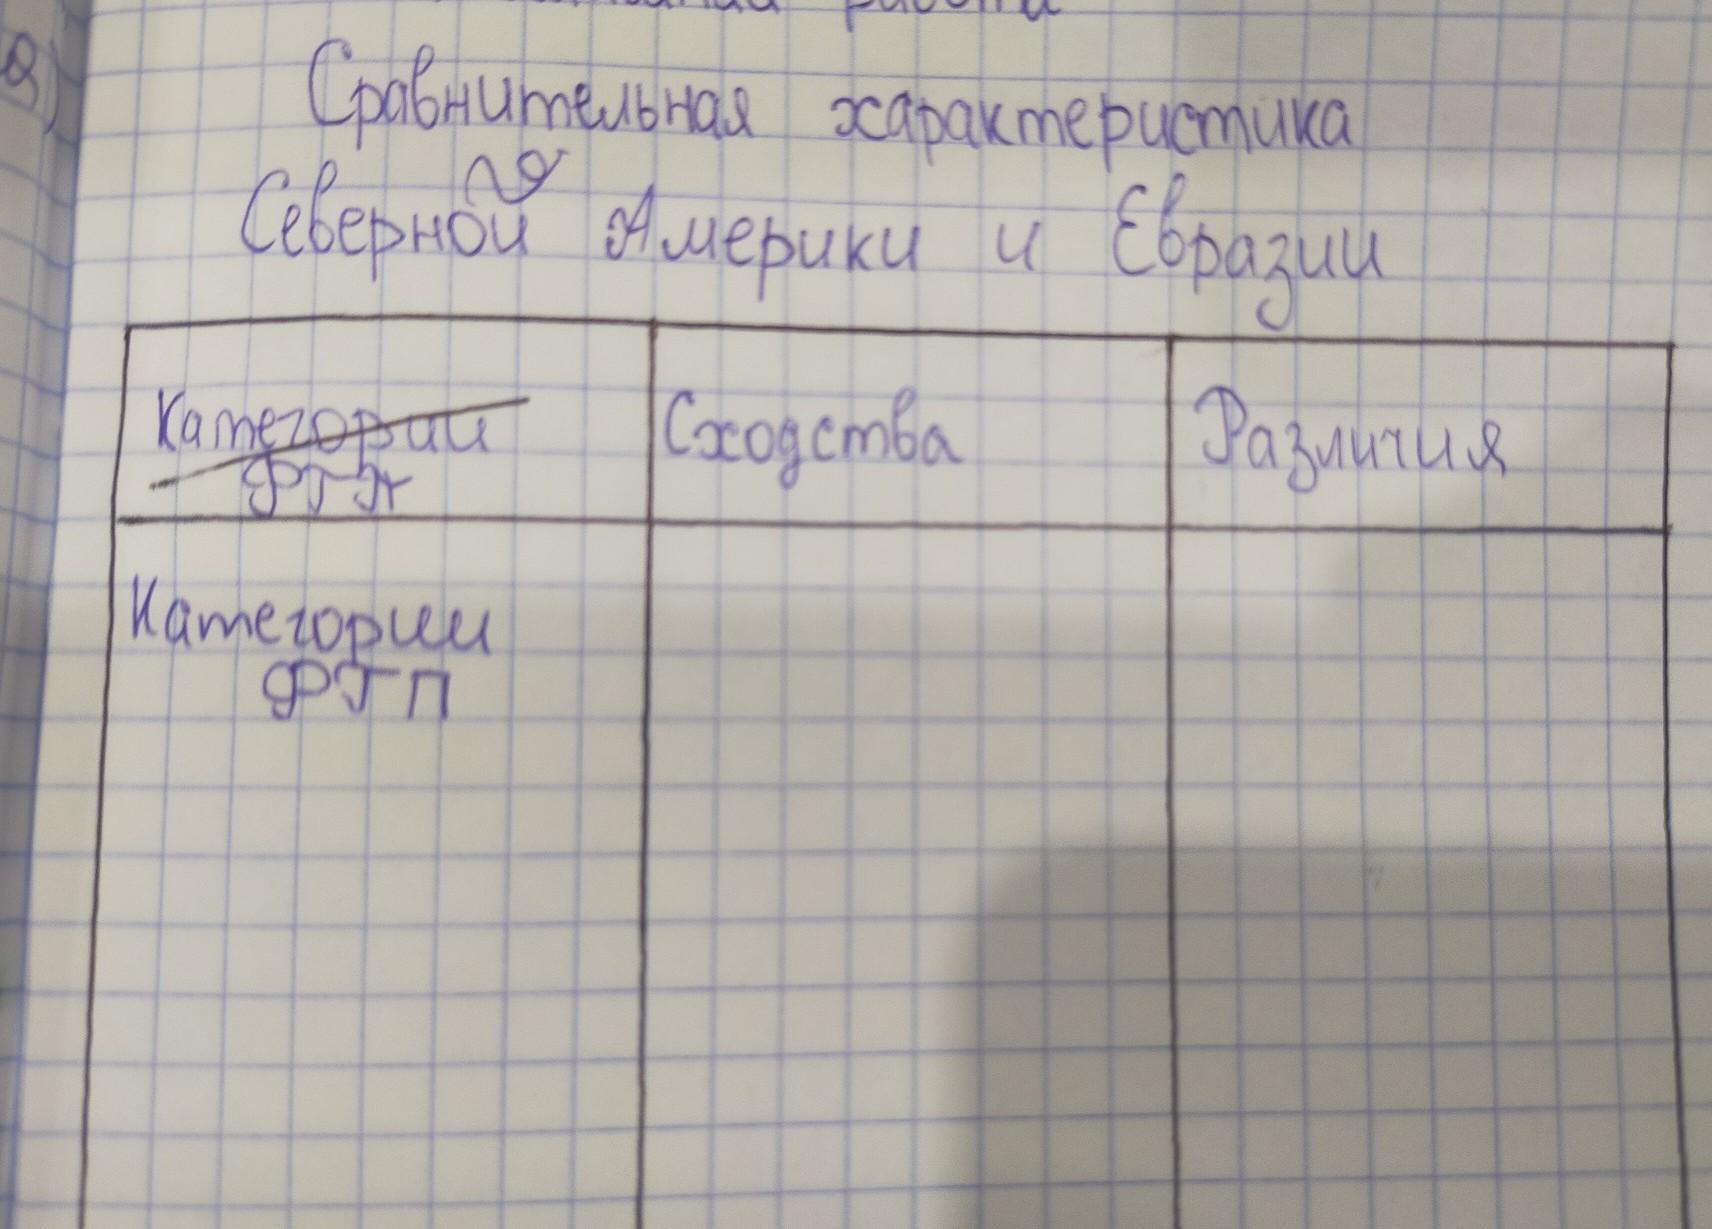 работа
Сравнительная характеристика
Северной Америки и Евразии
Категории Сходства Различия
ФГП
Категории
ФГП